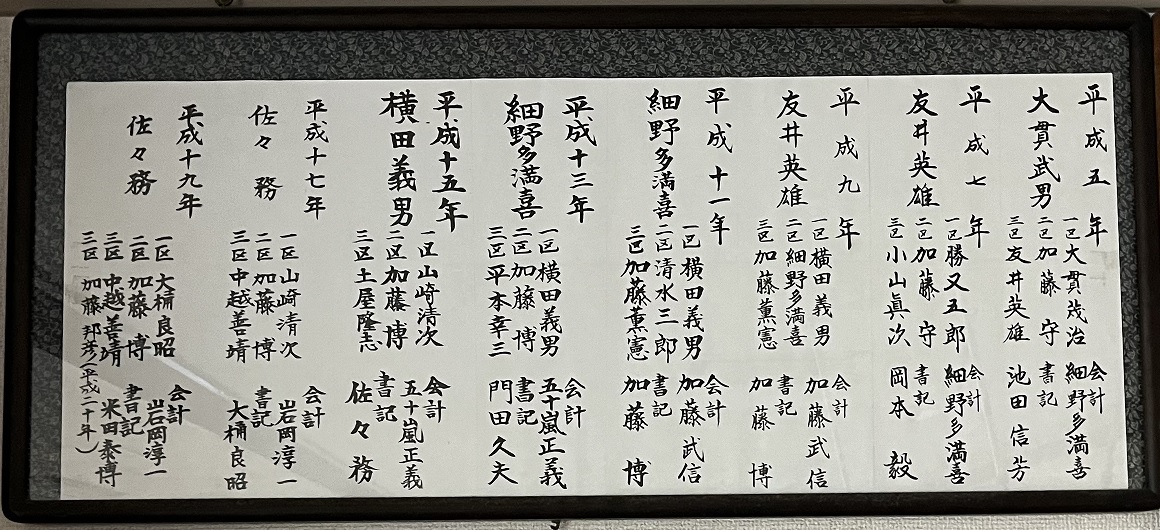 平成五年
大貫武男
一区大貫茂治
二区加藤守
三区友井英雄
会計
細野多満喜
書記
池田信芳
平成七年
友井英雄
一区勝又五郎
二区加藤守
三区小山眞次
会計
細野多満喜
書記
岡本毅
平成九年
友井英雄
一区横田義男
二区細野多満喜
三区加藤薫憲
会計
加藤武信
書記
加藤博
平成十一年
細野多満喜
一区横田義男
二区清水三郎
三区加藤薫憲
会計
加藤武信
書記
加藤博
平成十三年
細野多満喜
一区横田義男
二区加藤博
三区平本幸三
会計
五十嵐正義
書記
門田久夫
平成十五年
横田義男
一区山崎清次
二区加藤博
三区土屋隆志
会計
五十嵐正義
書記
佐々務
平成十七年
佐々務
一区山崎清次
二区加藤博
三区中越善靖
会計
岩岡淳一
書記
大桶良昭
平成十九年
佐々務
一区大桶良昭
二区加藤博
三区中越善靖
三区加藤邦彦(平成二十年)
会計
岩岡淳一
書記
米田泰博